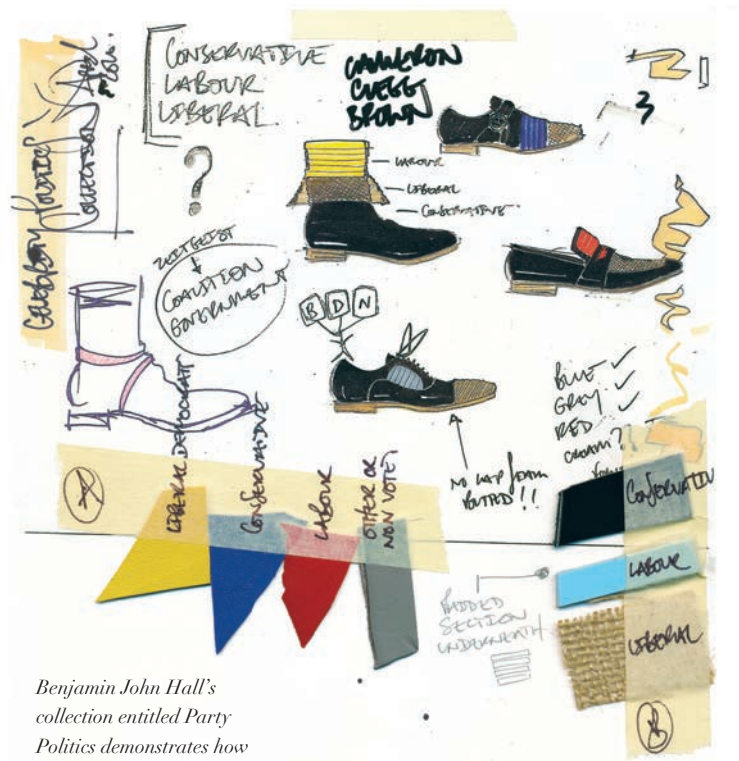 CONSERVATIVE
LABOUR
LIBERAL
?
CAMERON
CLEGG
BROWN
3
CELEBRITY POLITICS
COLLECTION
LABOUR
LIBERAL
CONSERVATIVE
ZEITGEIST
COALITION
GOVERNMENT
B D N
BLUE ✓
GRAY ✓
RED ✓
CREAM?
NO CAP FOAM
PUTTED!!
LIBERAL DEMOCRATS
CONSERVATIVE
LABOUR
OTHER OR
NON VOTE?
CONSERVATIVE
LABOUR
LIBERAL
PADDED
SECTION
UNDERNEATH
Benjamin John Hall's
collection entitled Party
Politics demonstrates how